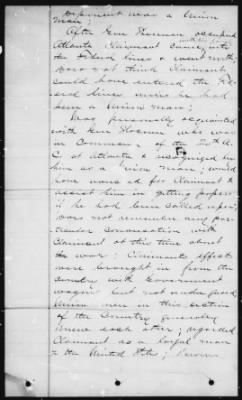 deponent was a Union
man;
After Gen Sherman occupied
Atlanta Claimant came into
the Federal lines & went north;
does not think Claimant
could have entered the Fed
eral lines unless he had
been a Union man;
Was personally acquainted
with Gen Slocum who was
in Command of the 20th A.
C. at Atlanta & recognized
him as a Union man; would
have vouched for Claimant &
assist him in getting papers
if he had been called upon;
Does not remember any par-
ticular conversation with
Claimant at this time about
the war; Claimants effects
were brought in from the
country with Government
wagons but not under guard;
Union men in this section
of the Country generally
knew each other; regarded
Claimant as a loyal man
to the United States;